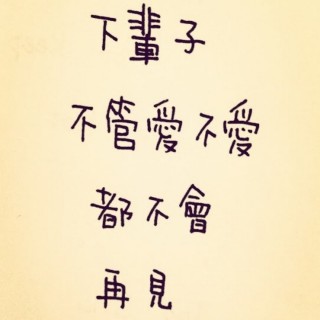 下輩子
不管愛不愛
都不會
再見